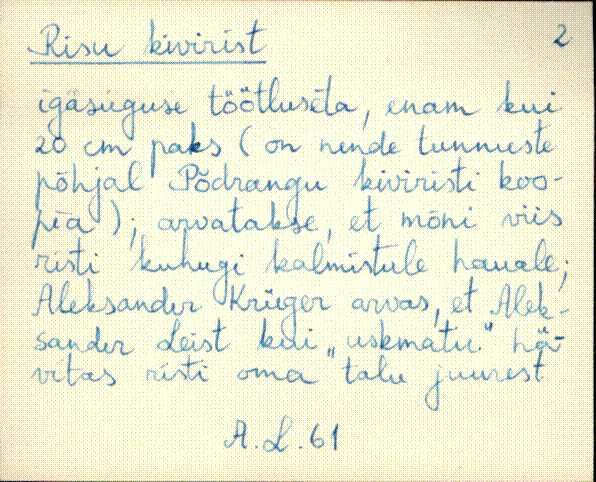 Risu kivirist
2
igasuguse töötluseta, enam kui
20 cm paks (on nende tunnuste
põhjal Põdrangu kiviristi koo-
pia); arvatakse, et mõni viis
risti kuhugi kalmistule hauale;
Aleksander Krüger arvas, et Alek-
sander Leist kui „uskmatu" hä-
vitas risti oma talu juurest
A.L.61